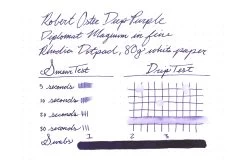 Robert Oster Deep Purple
Diplomat Magnum in fine
Rhodia Dotpad, 80g white paper
Smear Test Drip Test
5 seconds
10 seconds
20 seconds
30 seconds
Swabs 1 2 3